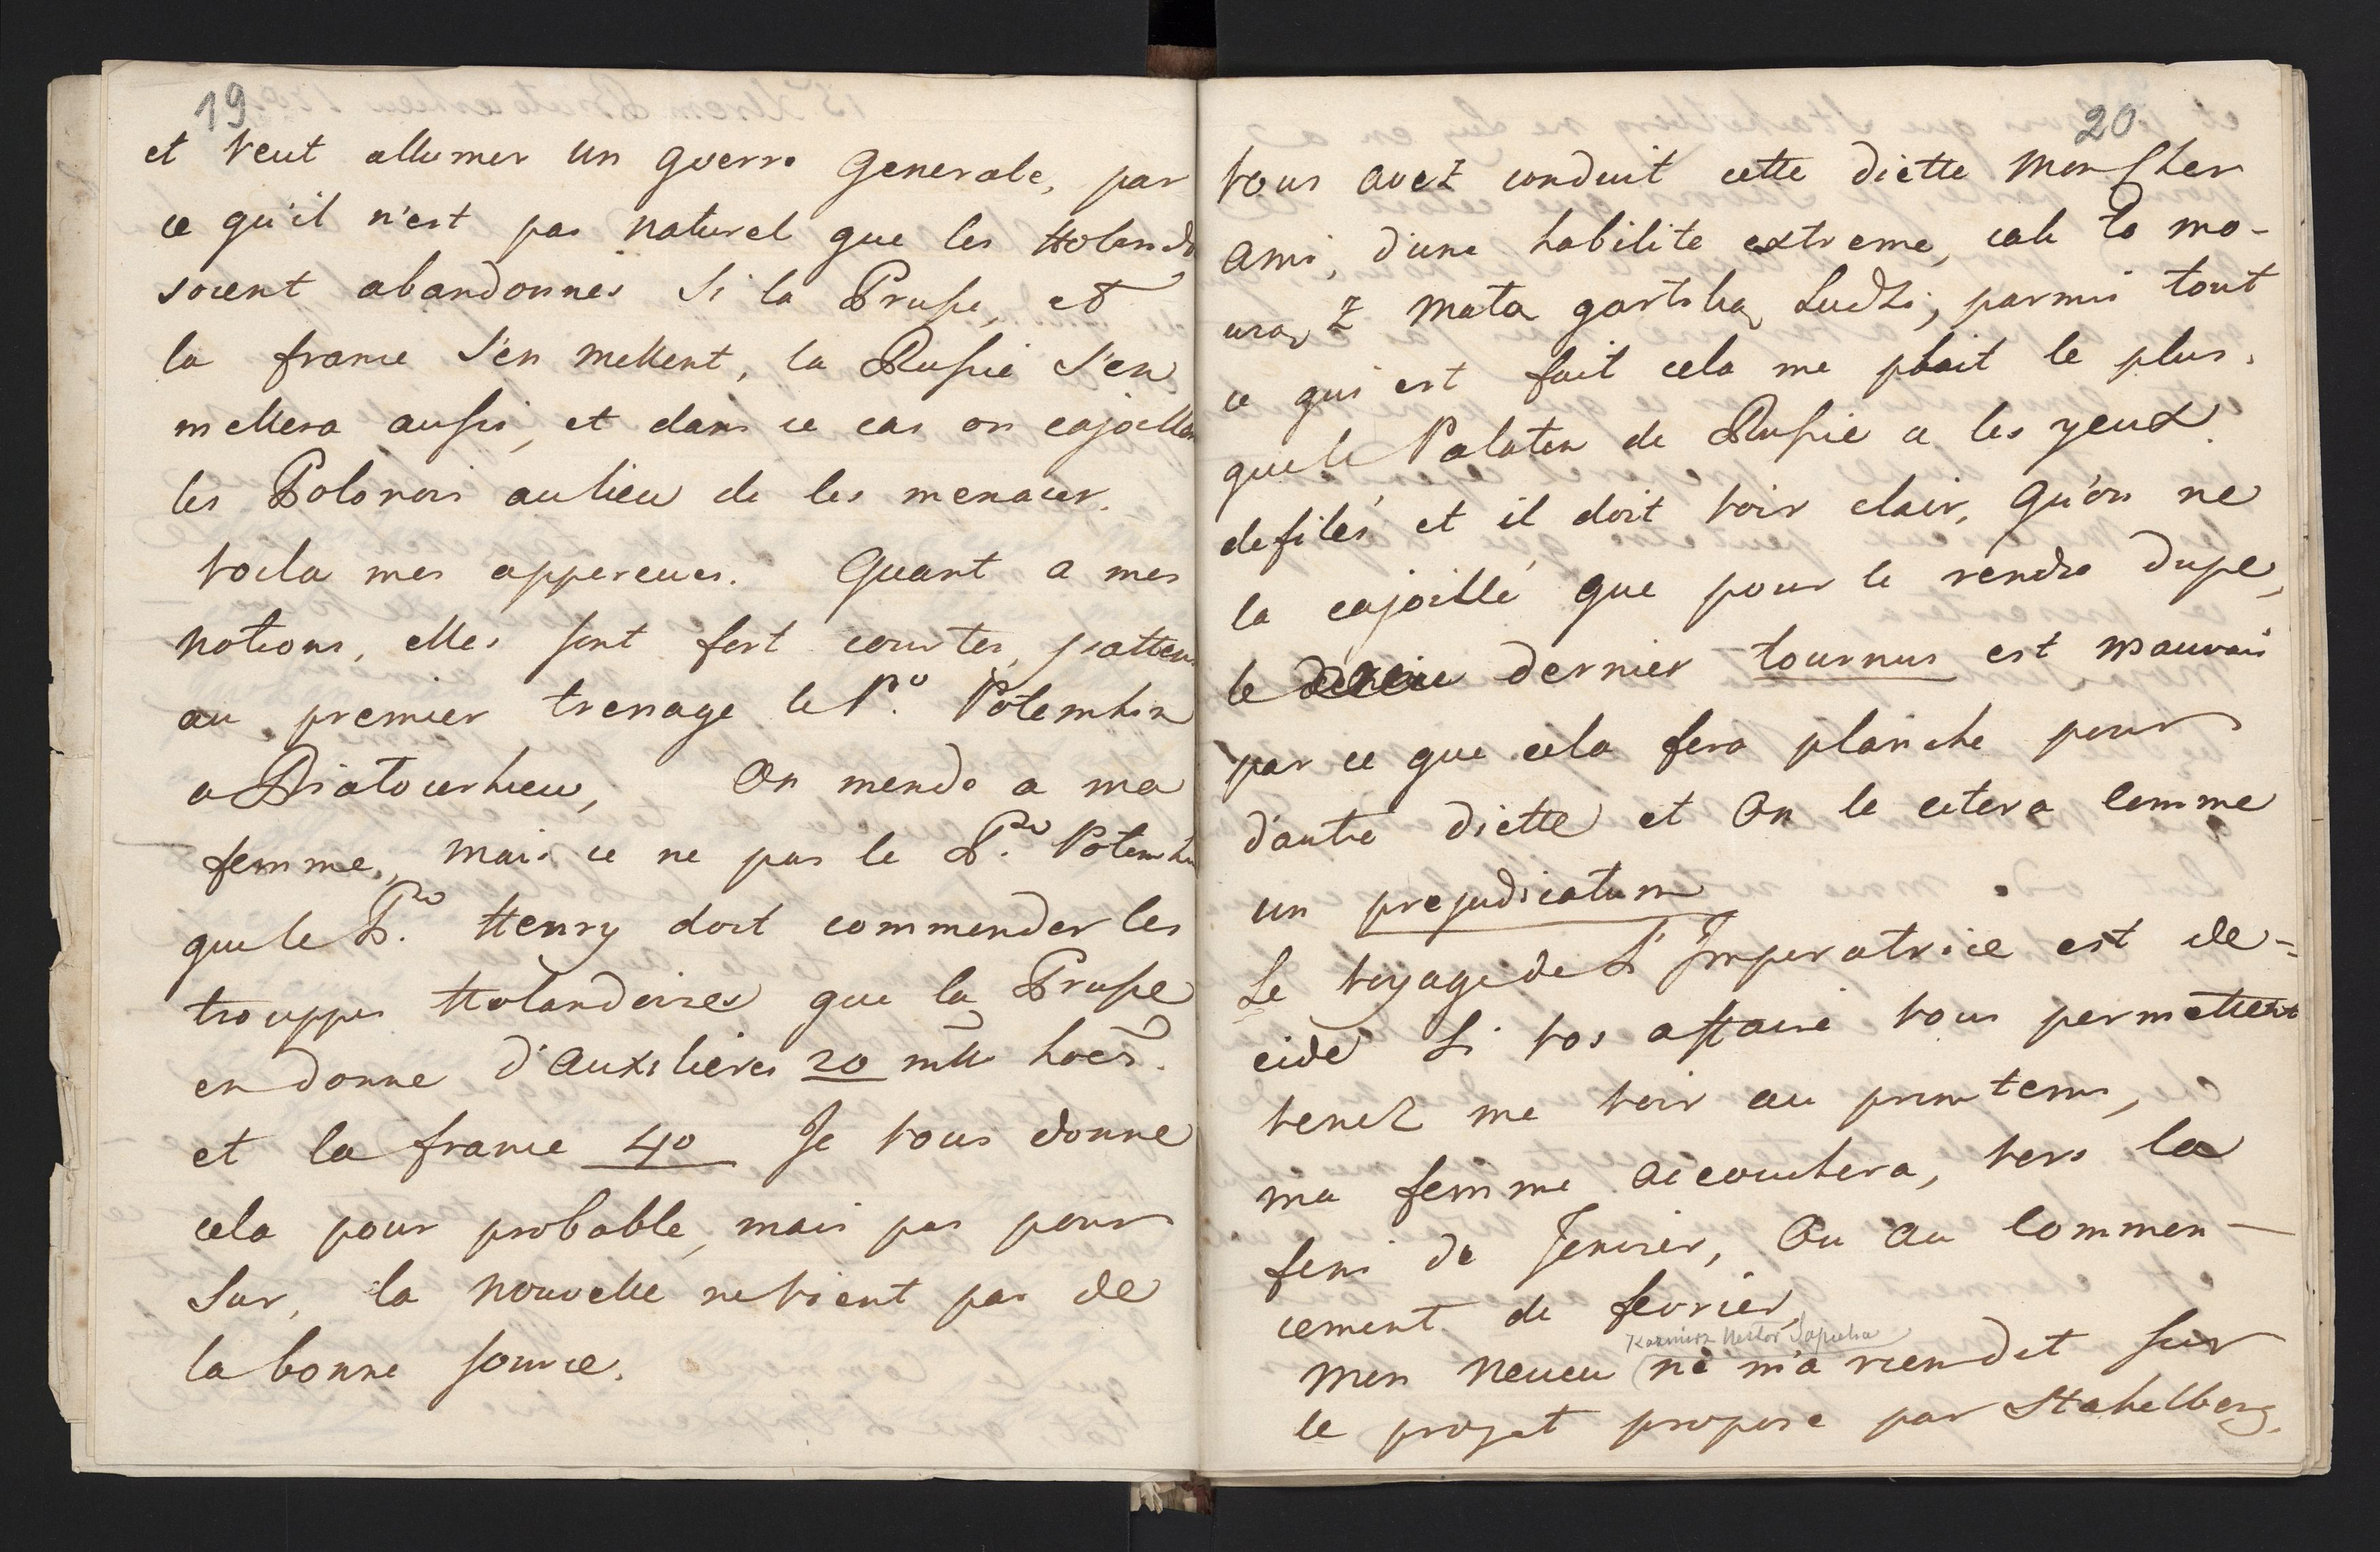 19
et veut allumer un guerre Generale, par
ce qu'il n'est pas naturel que les Holand
soient abandonnés Si la Prusse, et
la france S'en mellent, la Russie S'en
mellera aussi, et dans ce cas on cajoillera
les Polonois au lieu de les menacer.
voila mes appercues. Quant a mes
notions, elles sont fort courtes, j'attens
au premier trenage le P.ce Potemkin
a Biatocerkiew, On mende a ma
femme, mais ce ne pas le P.ce Potemkin
que le P.ce Henry doit commender les
trouppes Holandoises que la Prusse
en donne d'Auxilieres 20 mll hoës.
et la france 40 Je vous donne
cela pour probable, mais pas pour
Sur, la nouvelle ne vient pas de
la bonne source.
20
vous avez conduit cette diette Mon Cher
Ami, d'une habilite extreme, cale to mo-
wiąc z mata gartską Ludzi, parmis tout
ce qui est fait cela me plait le plus.
que le Palaten de Russie a les yeux
defilés et il doit voir clair, qu'on ne
la cajoillé que pour le rendre dupe,
le dernier tournus est mauvais
par ce que cela fera planche pour
d'autre diette et On le citera Comme
un prejudicatum
Le voyage de L'Imperatrice est de=
cidé Si vos affaire vous permettent
venez me voir au printems,
ma femme accouchera, vers la
feni de Jenvier, Ou au Commen-
cement de fevrier,
Kazimierz Nestor Sapieha
Mon neveu ne m'a rien dit sur
le projet propose par Stakelberg.